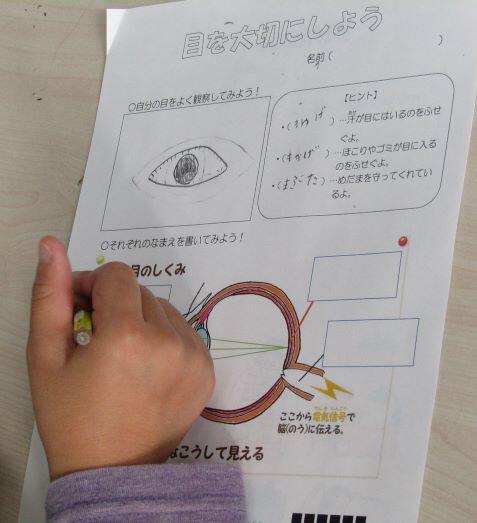 目を大切にしよう
名前(　　　　　)
○自分の目をよく観察してみよう！
【ヒント】
・(まゆげ)…汗が目にはいるのをふせ
ぐよ。
・(まつげ)…ほこりやゴミが目に入る
のをふせぐよ。
・(まぶた)…めだまを守ってくれてい
るよ。
○それぞれのなまえを書いてみよう！
目のしくみ
ここから電気信号で
でんきしんごう
脳(のう)に伝える。
こうして見える